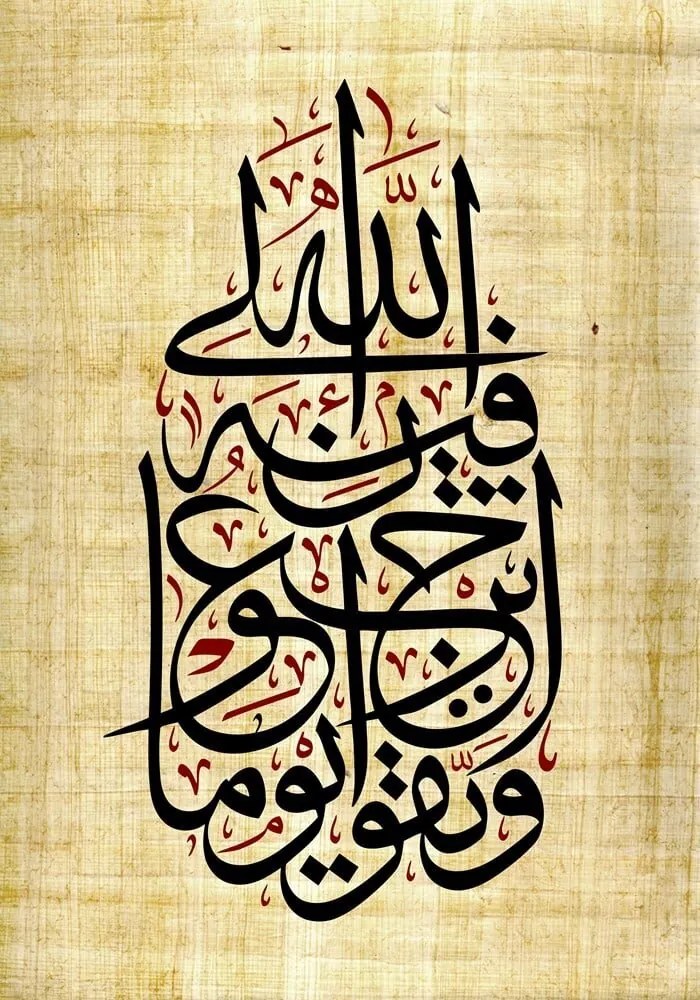 وَاتَّقُوا يَوْمًا
تُرْجَعُونَ
فِيهِ إِلَى
اللَّهِ